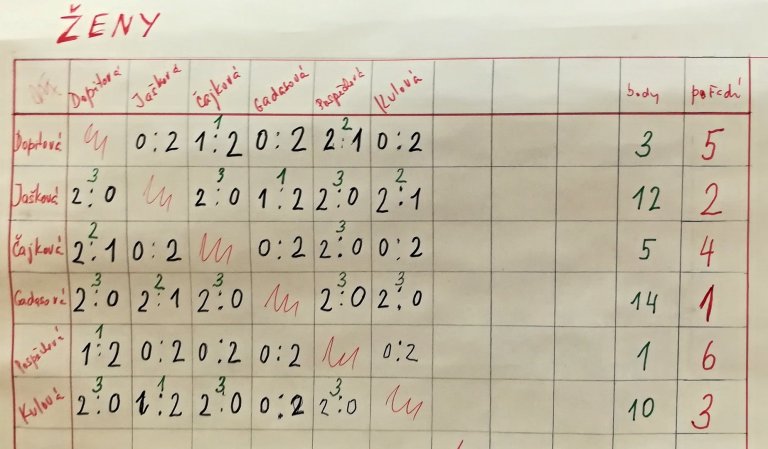 ŽENY
Dopitová Jašková Čajková Gadasová Pospíchová Kulová body pořadí
Dopitová 0:2 1:2 1 0:2 2:1 2 0:2 3 5
Jašková 2:0 3 2:0 3 1:2 1 2:0 3 2:1 2 12 2
Čajková 2:1 2 0:2 0:2 2:0 3 0:2 5 4
Gadasová 2:0 3 2:1 2 2:0 3 2:0 3 2:0 3 14 1
Pospíchová 1:2 1 0:2 0:2 0:2 0:2 1 6
Kulová 2:0 3 1:2 1 2:0 3 0:2 2:0 3 10 3